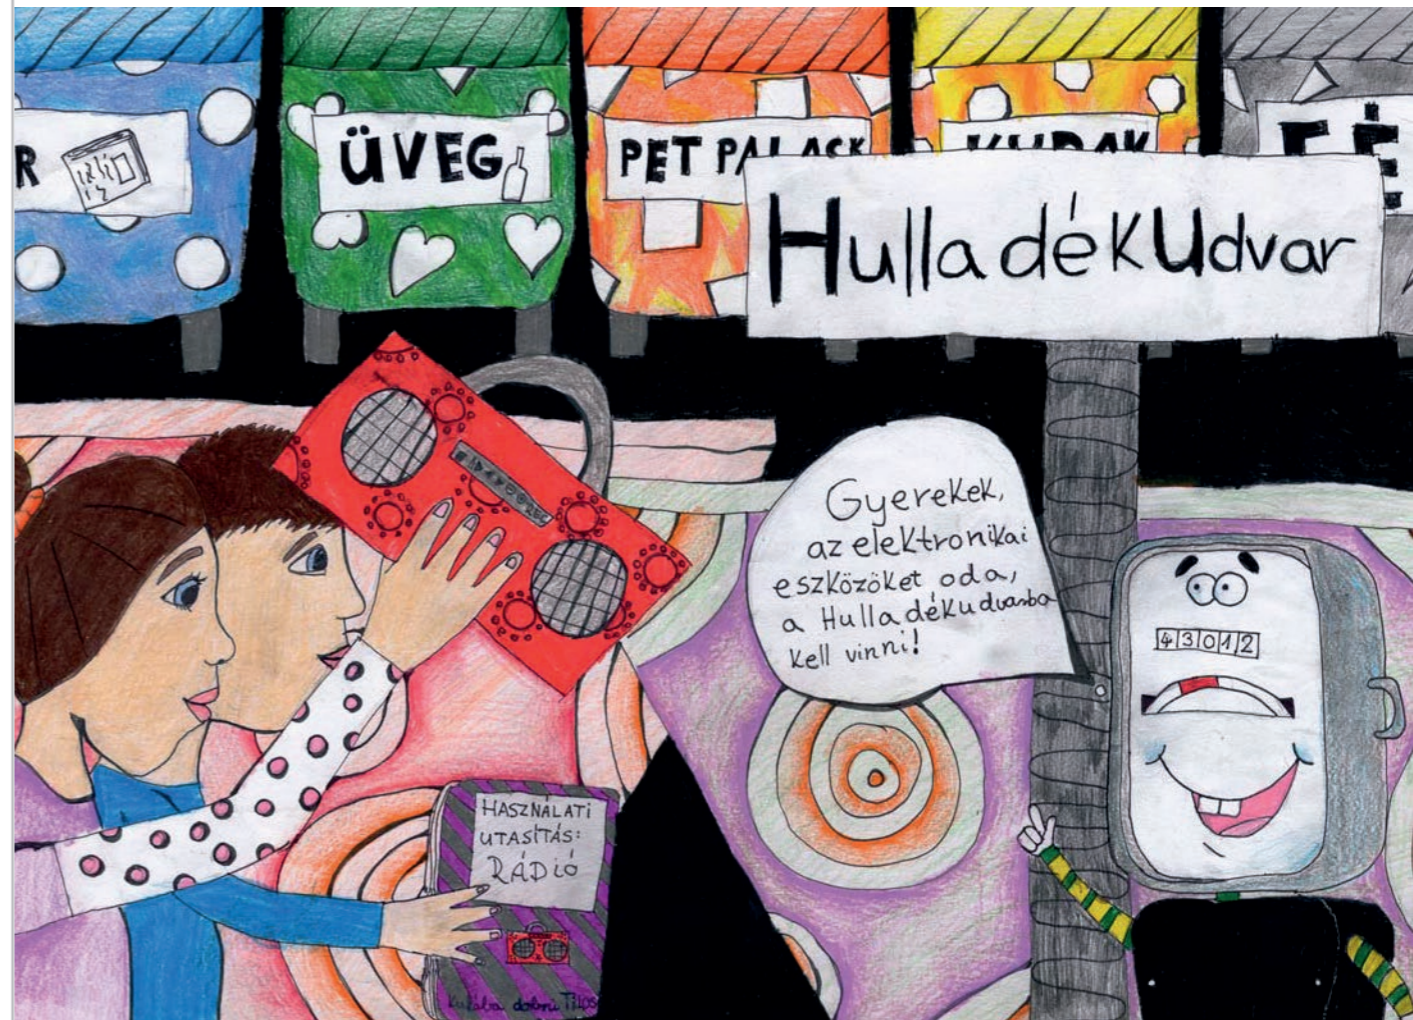 R
ÜVEG
PET PALACK
KUPAK
FÉ
HulladékUdvar
Gyerekek,
az elektronikai
eszközöket oda,
a Hulladékudvarba
kell vinni!
43012
HASZNÁLATI
UTASÍTÁS:
RÁDIÓ
Kukába dobni Tilos